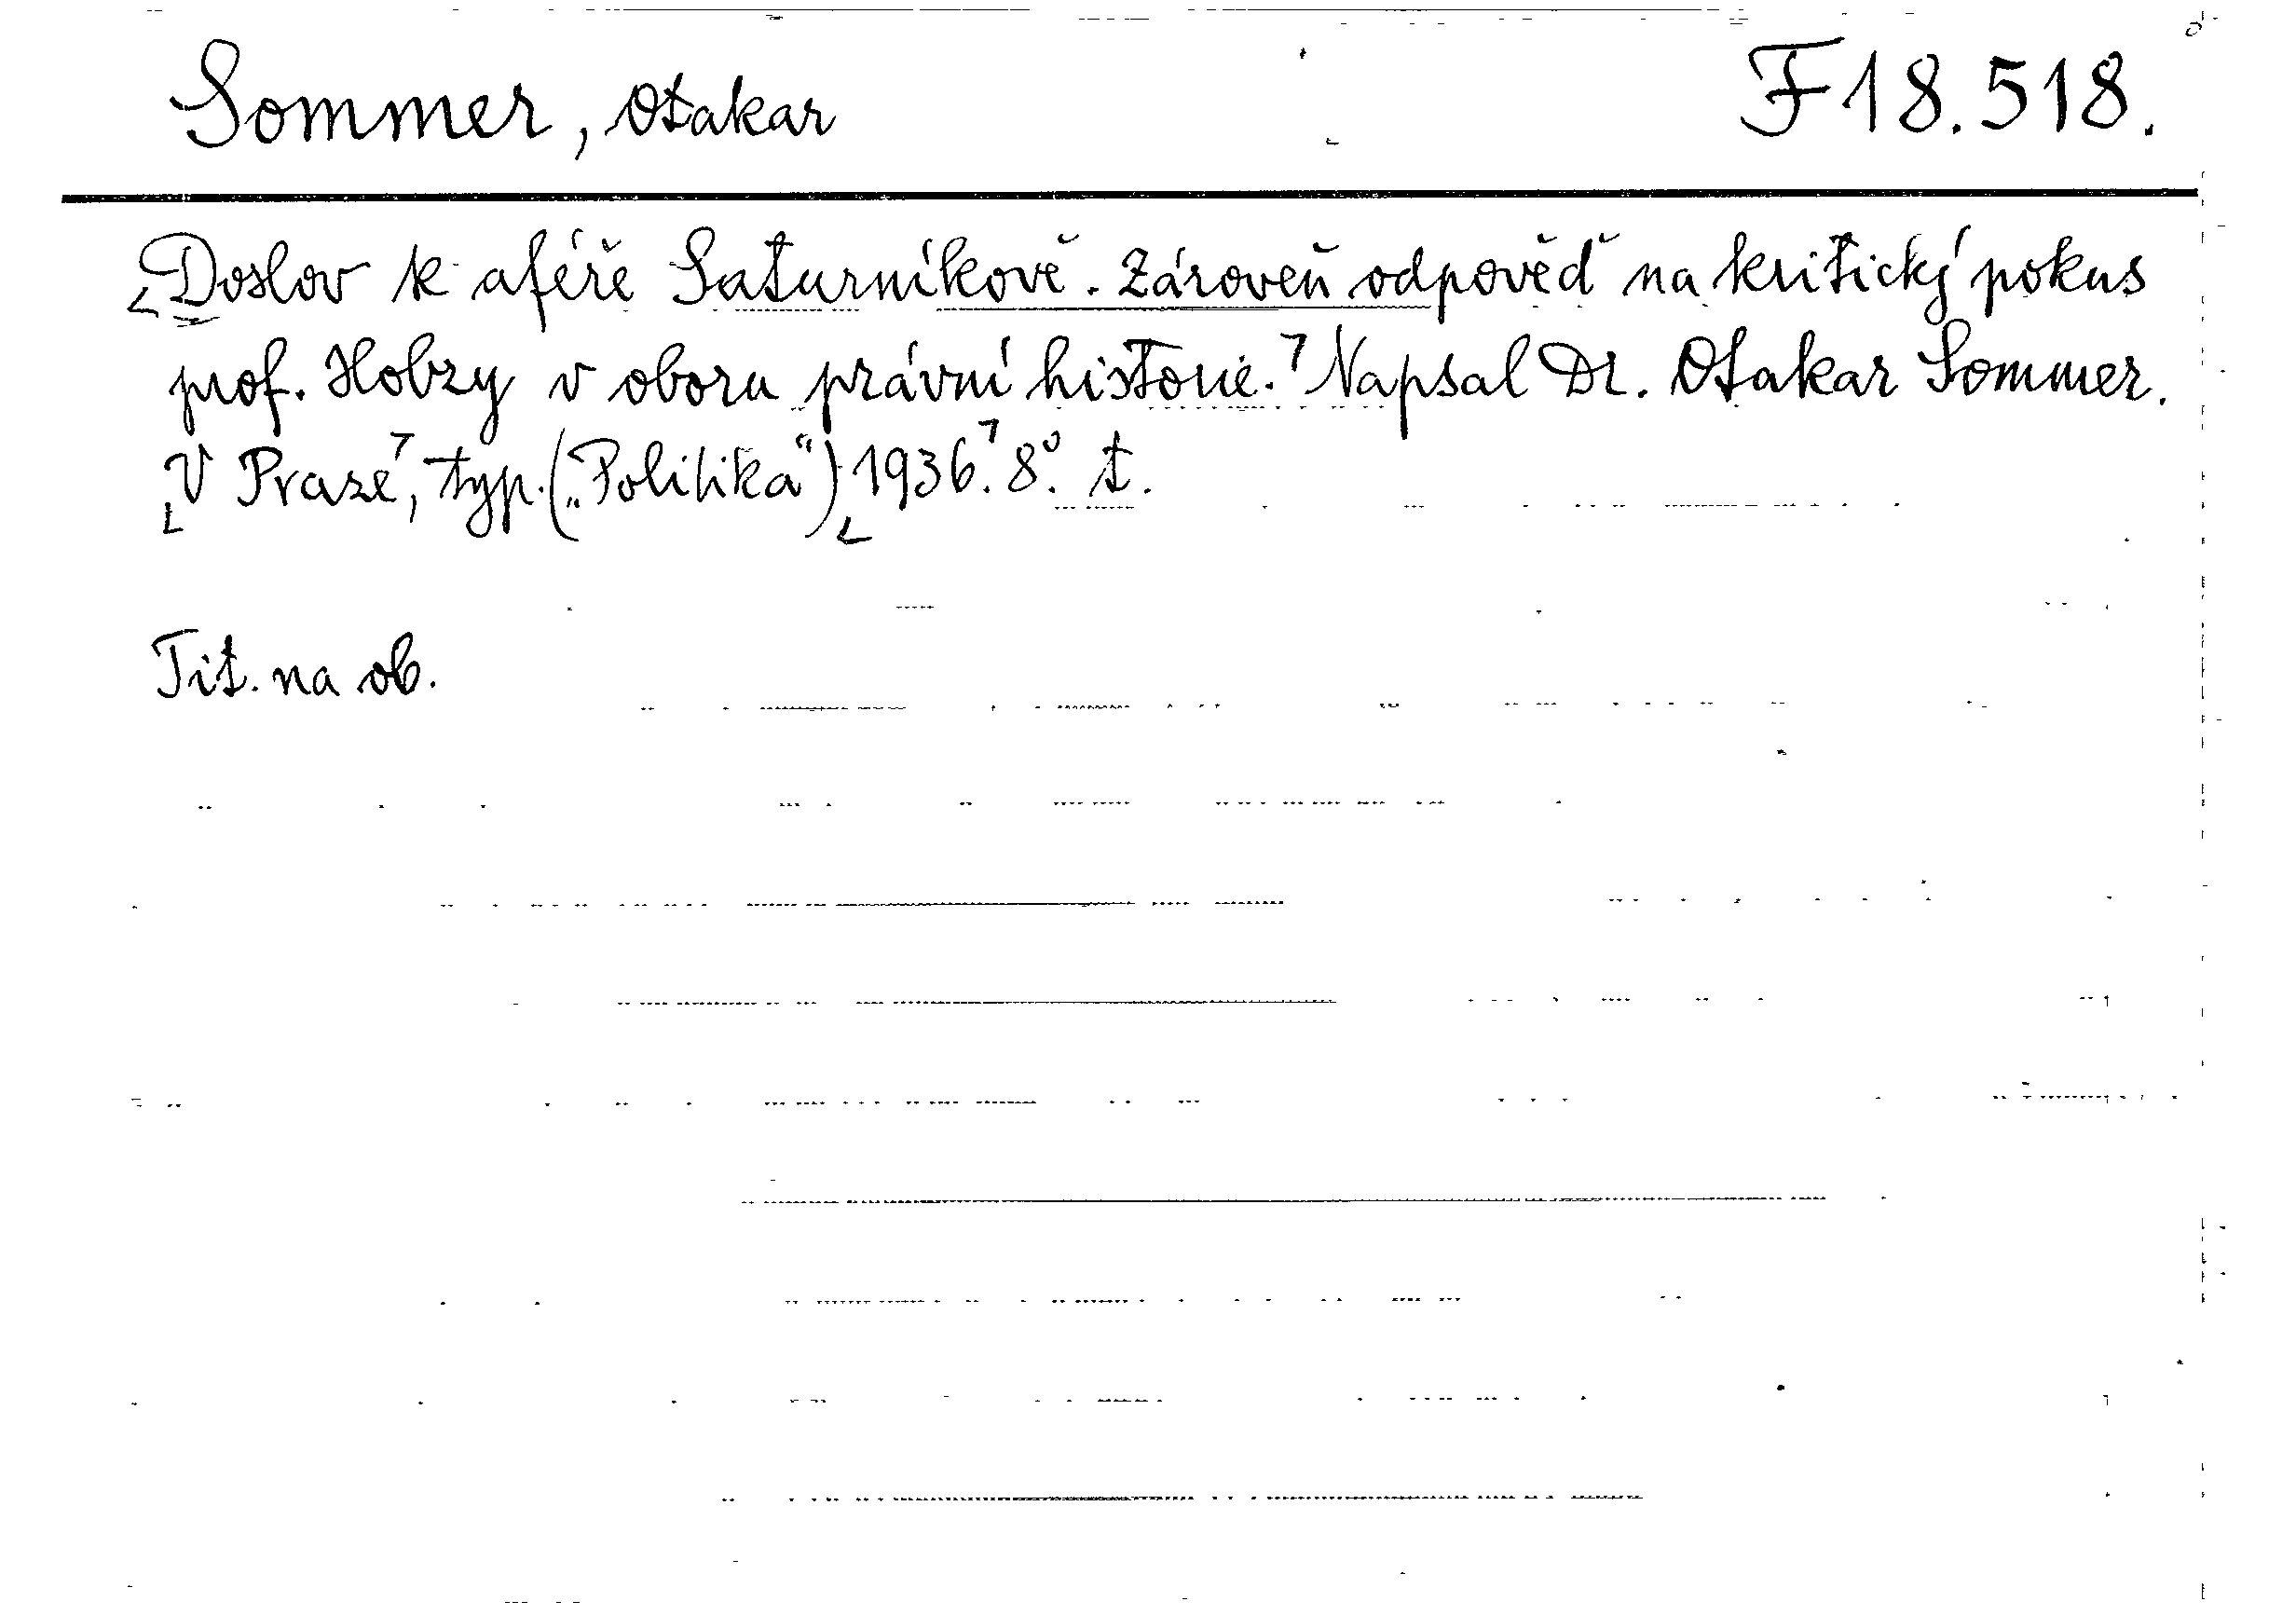 Sommer, Otakar F 18.518.
⌞Doslov k aféře Saturníkově. Zároveň odpověď na kritický pokus
prof. Hobzy v oboru právní historie.⌝ Napsal Dr. Otakar Sommer.
⌞V Praze⌝, typ. („Politika“) ⌞1936.⌝ 8°. t.
Tit. na ob.